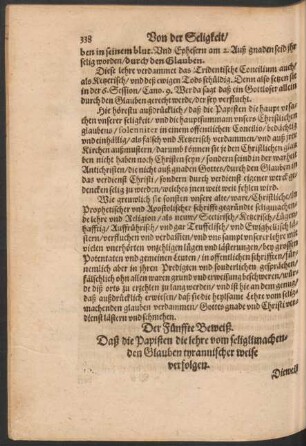 338 Von der Seligkeit/
ben in seinem blut. Und Ephesern am 2. Auß gnaden seid ihr
selig worden/ durch den Glauben.
Diese lehr verdammet das Tridentische Concilium auch/
als Ketzerisch/ und deß ewigen Tods schüldig. Denn also setzen sie
in der 6. Session/ Cano. 9. Wer da sagt daß ein Gottloser allein
durch den Glauben gerecht werde/ der sey verflucht.
Hie hörestu außdrücklich/ daß die Papisten die haupt ursa-
chen unserer seligkeit/ und die hauptsumma unsers Christlichen
glaubens/ solenniter in einem offentlichen Concilio/ bedächtlich
und einhällig/ als falsch und Ketzerisch verdammen/ und auß jrer
Kirchen außmustern. darumb können sie je den Christlichen glau-
ben nicht haben noch Christen seyn/ sondern seind in der warheit
Antichristen/ die nicht auß gnaden Gottes/ durch den Glauben an
das verdienst Christi/ sondern durch verdienst eigner werck ge-
dencken selig zu werden/ welches jnen weit weit fehlen wird.
Wie grewlich sie sonsten unsere alte/ ware/ Christliche/
Prophetischer und Apostolischer schrifft gegründte seligmachen-
de lehre und Religion/ als newe/ Sectirisch/ Ketzerisch/ Lügen-
hafftig/ Auffrührisch/ und gar Teuffelisch/ und Ewighellisch lä-
stern/ verfluchen und verdallien/ und uns sampt unser lehre mit
vielen unerhörten unzehligen lügen und lästerungen/ bey grossen
Potentaten und gemeinen Leuten/ in offentlichen schrifften/ für-
nemlich aber in jhren Predigten und sonderlichen gesprächen/
fälschlich ohn allen waren grund und erweisung beschweren/ were
dißorts zu erzehlen zu langwerdig/ und ist hie an dem genug/
daß außdrücklich erwiesen/ daß sie die heylsame Lehre vom selig-
machenden glauben verdammen/ Gottes gnade und Christi ver-
dienst lästern und schmehen.
Der Fünffte Beweiß.
Daß die Papisten die lehre vom seligmachen-
den Glauben tyrannischer weise
verfolgen.
Dieweil